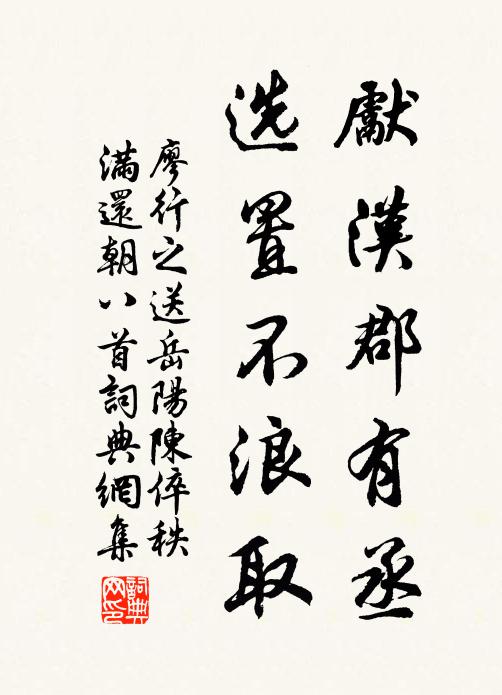 獻漢郡有丞
选置不浪取
廖行之送岳陽陳倅秩
滿還朝八首詞典網集
詞典网印